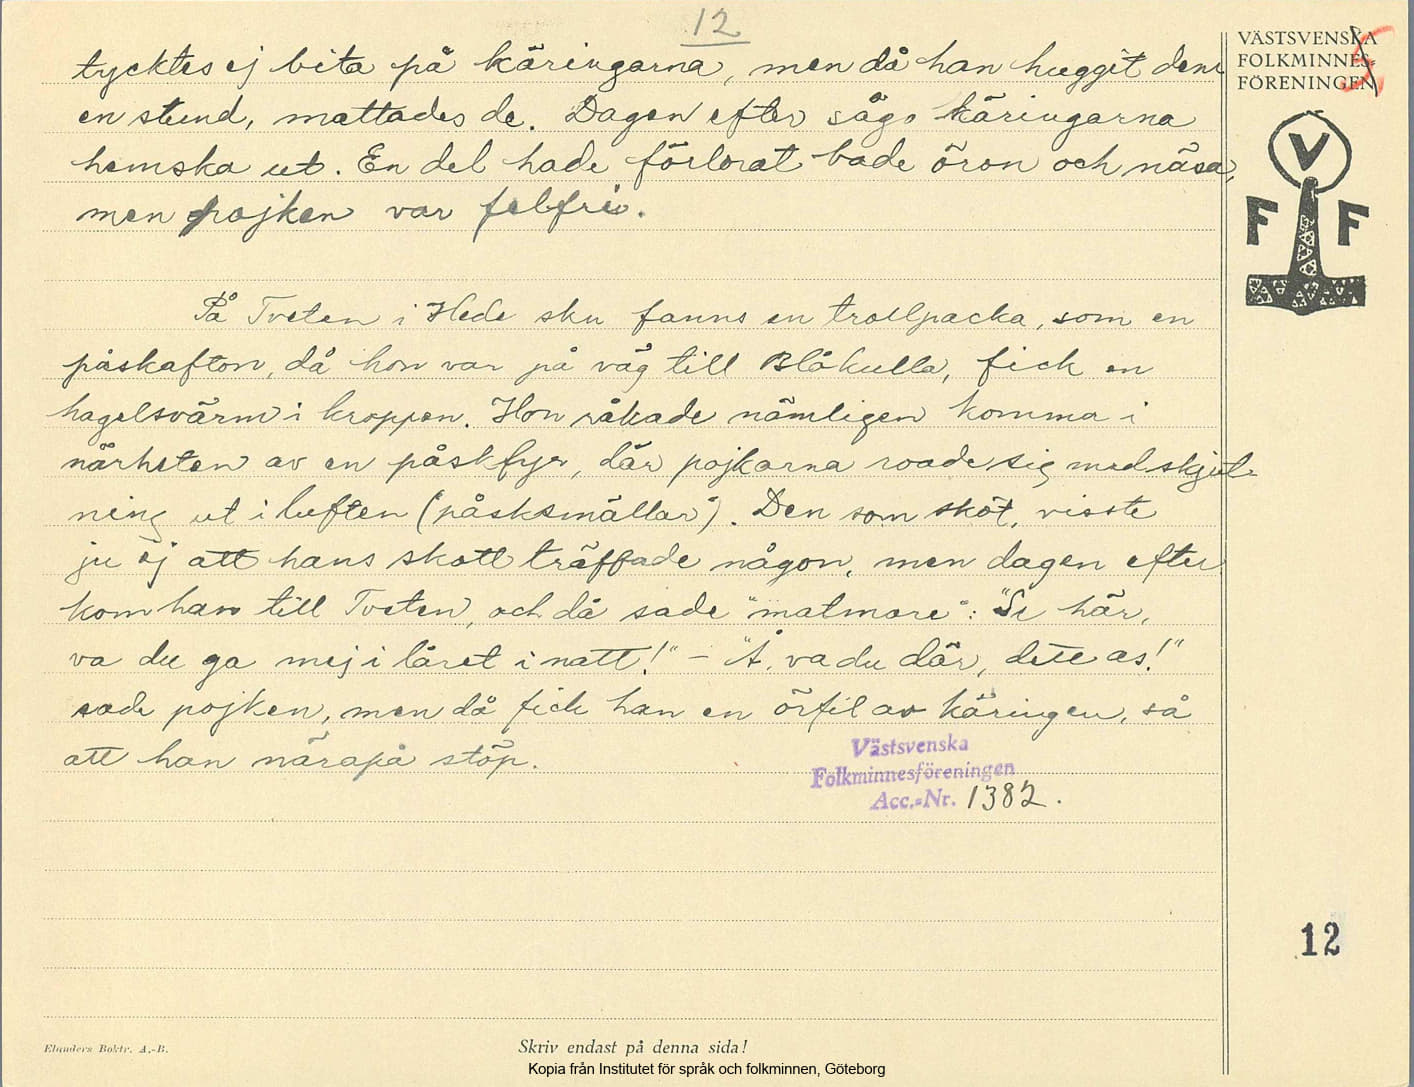 12
VÄSTSVENSKA
FOLKMINNES-
FÖRENINGEN
tycktes ej bita på käringarna, men då han huggit dem
en stund, mattades de. Dagen efter sågo käringarna
hemska ut. En del hade förlorat både öron och näsa,
men pojken var felfri.
V
F F
På Tveten i Hede skn fanns en trollpacka, som en
påskafton, då hon var på väg till Blåkulla, fick en
hagelsvärm i kroppen. Hon råkade nämligen komma i
närheten av en påskfyr, där pojkarna roade sig med skjut-
ning ut i luften (påsksmällar). Den som sköt, visste
ju ej att hans skott träffade någon, men dagen efter
kom han till Tveten, och då sade "matmore": "Se här,
va du ga mej i låret i natt!" – "Å, va du där, dette as!"
sade pojken, men då fick han en örfil av käringen, så
att han närapå stöp.
Västsvenska
Folkminnesföreningen
Acc.-Nr. 1382.
12
Elanders Boktr. A.-B.
Skriv endast på denna sida!
Kopia från Institutet för språk och folkminnen, Göteborg